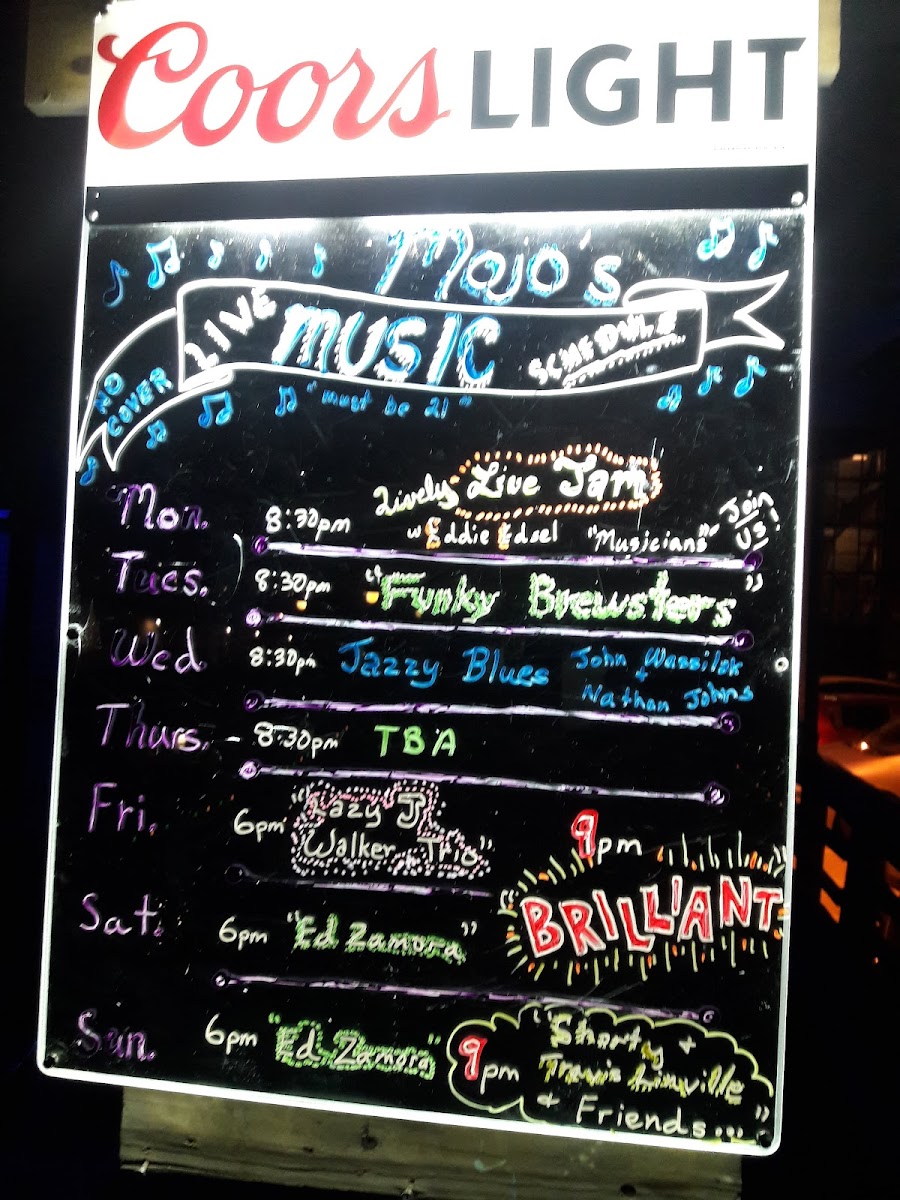 Coors LIGHT
Mojo's
LIVE MUSIC SCHEDULE
NO COVER
"must be 21"
Mon. 8:30pm Lively Live Jam
w Eddie Edsel "Musicians" Join Us!
Tues. 8:30pm "Funky Brewsters"
Wed. 8:30pm Jazzy Blues John Wassilak
+ Nathan Johns
Thurs. - 8:30pm TBA
Fri. 6pm "Lazy J
Walker Trio"
9pm
BRILLIANT
Sat. 6pm "Ed Zamora"
Sun. 6pm "Ed Zamora"
9pm "Shorty +
Travis Linville
+ Friends..."